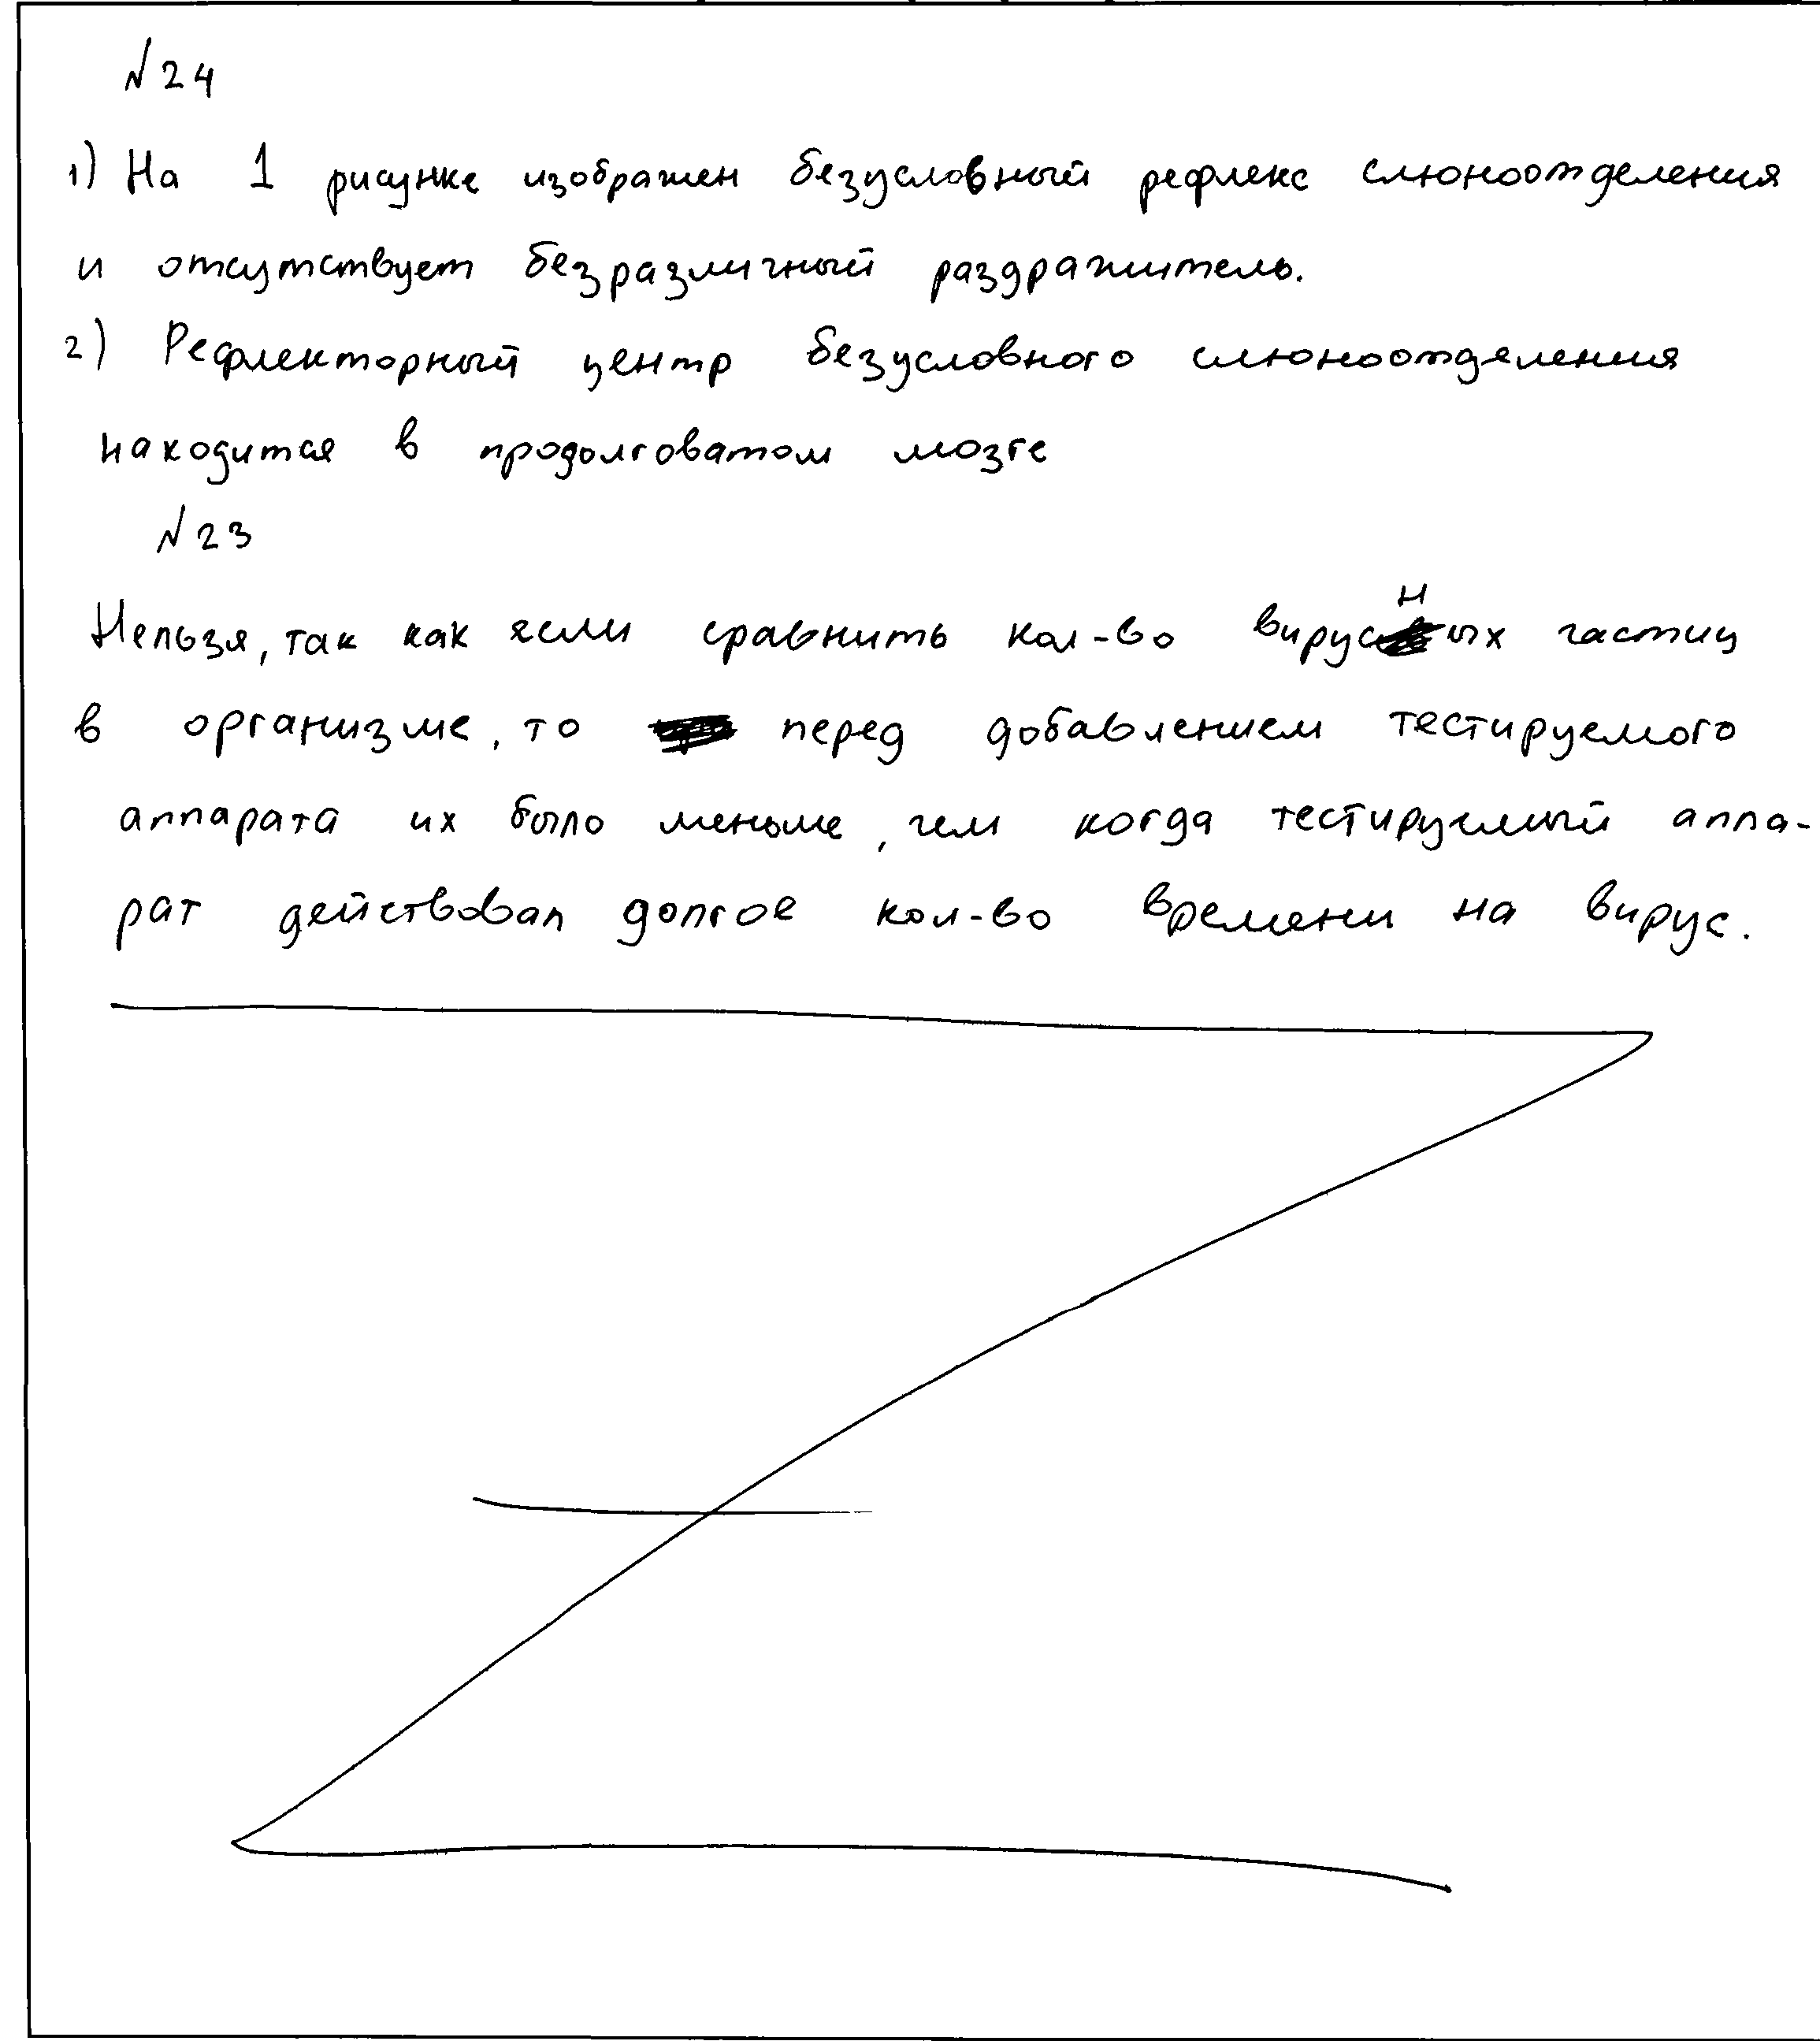 №24
1) На 1 рисунке изображен безусловный рефлекс слюноотделения
и отсутствует безразличный раздражитель.
2) Рефлекторный центр безусловного слюноотделения
находится в продолговатом мозге
№23
Нельзя, так как если сравнить кол-во вирусных частиц
в организме, то перед добавлением тестируемого
аппарата их было меньше, чем когда тестируемый аппа-
рат действовал долгое кол-во времени на вирус.